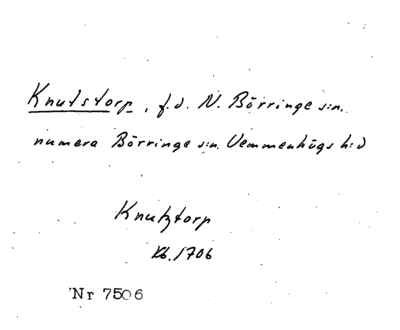 Knutstorp, f.d. N. Börringe s:n.
numera Börringe s:n. Vemmenhögs h:d
Knutztorp
Kb. 1706
Nr 7506